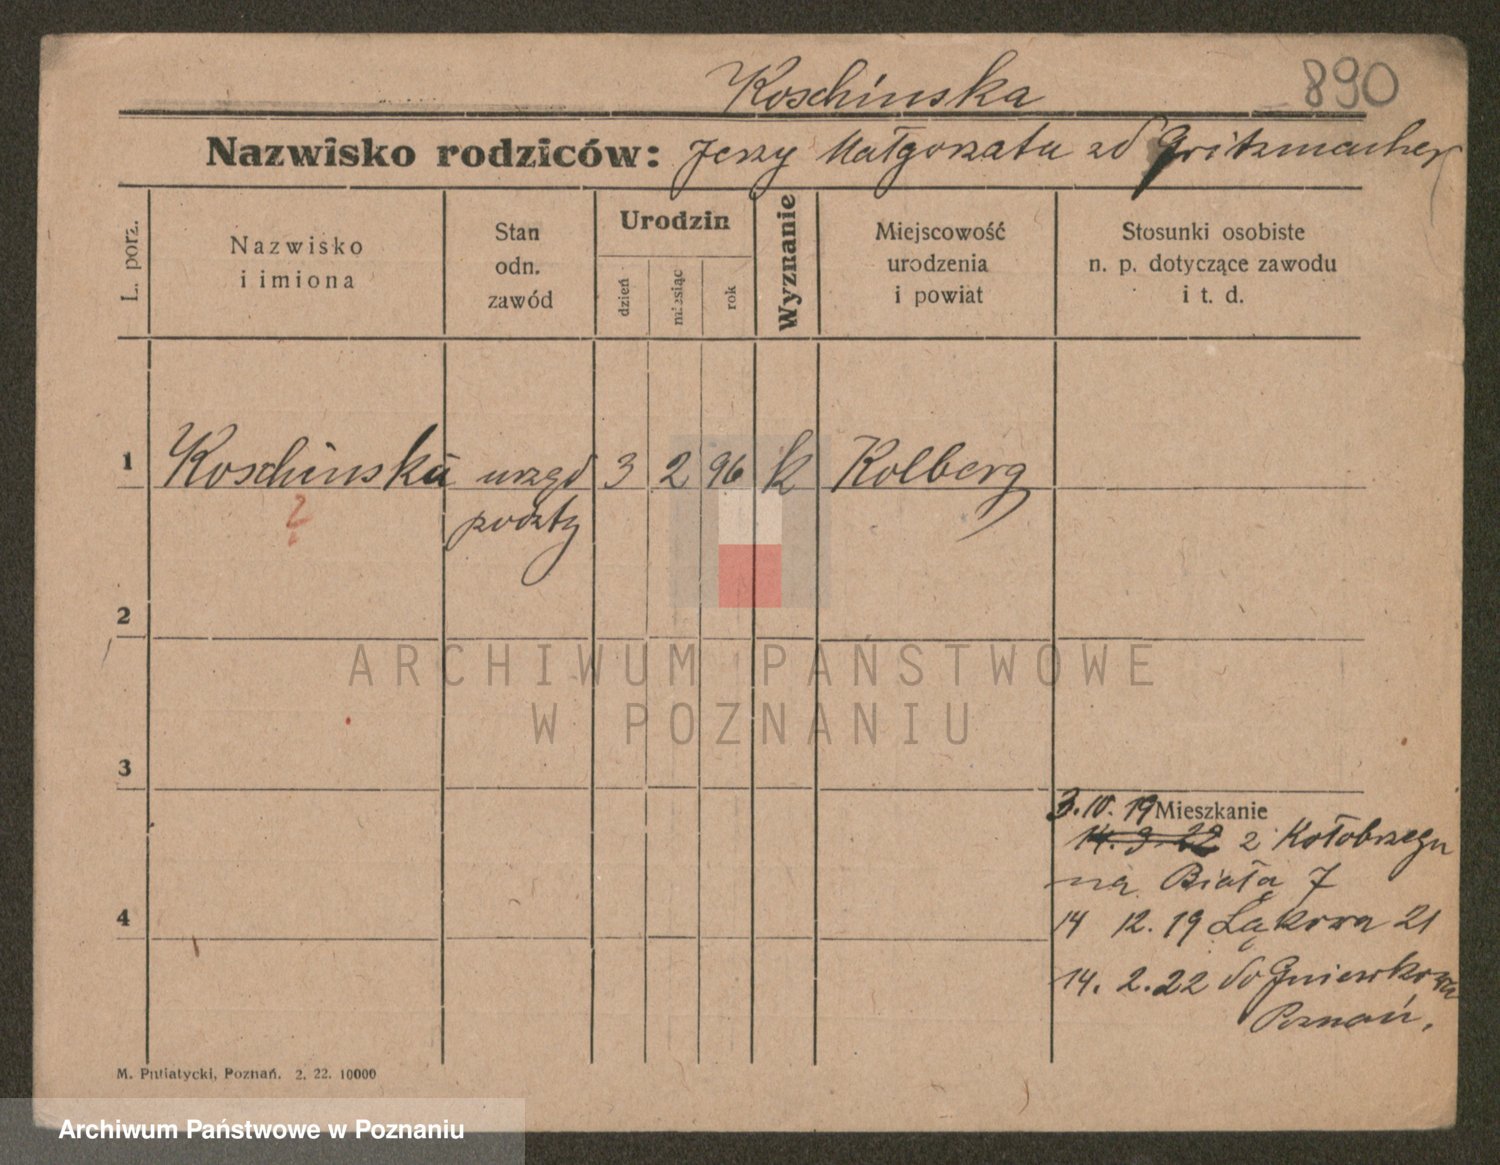 Koschinska 890
Nazwisko rodziców: Jerzy Małgorzata zd Gritzmacher
L. porz.
Nazwisko
i imiona
Stan
odn.
zawód
Urodzin
dzień
miesiąc
rok
Wyznanie
Miejscowość
urodzenia
i powiat
Stosunki osobiste
n. p. dotyczące zawodu
i t. d.
1 Koschinska urzęd 3 2 96 k Kolberg
poczty
2
ARCHIWUM PAŃSTWOWE
W POZNANIU
3
3.10.19 Mieszkanie
14.3.22 z Kołobrzegu
na Białą 7
4
14 12.19 Łąkowa 21
14.2.22 do Gniewkowa
Poznań.
M. Putiatycki, Poznań. 2. 22. 10000
Archiwum Państwowe w Poznaniu